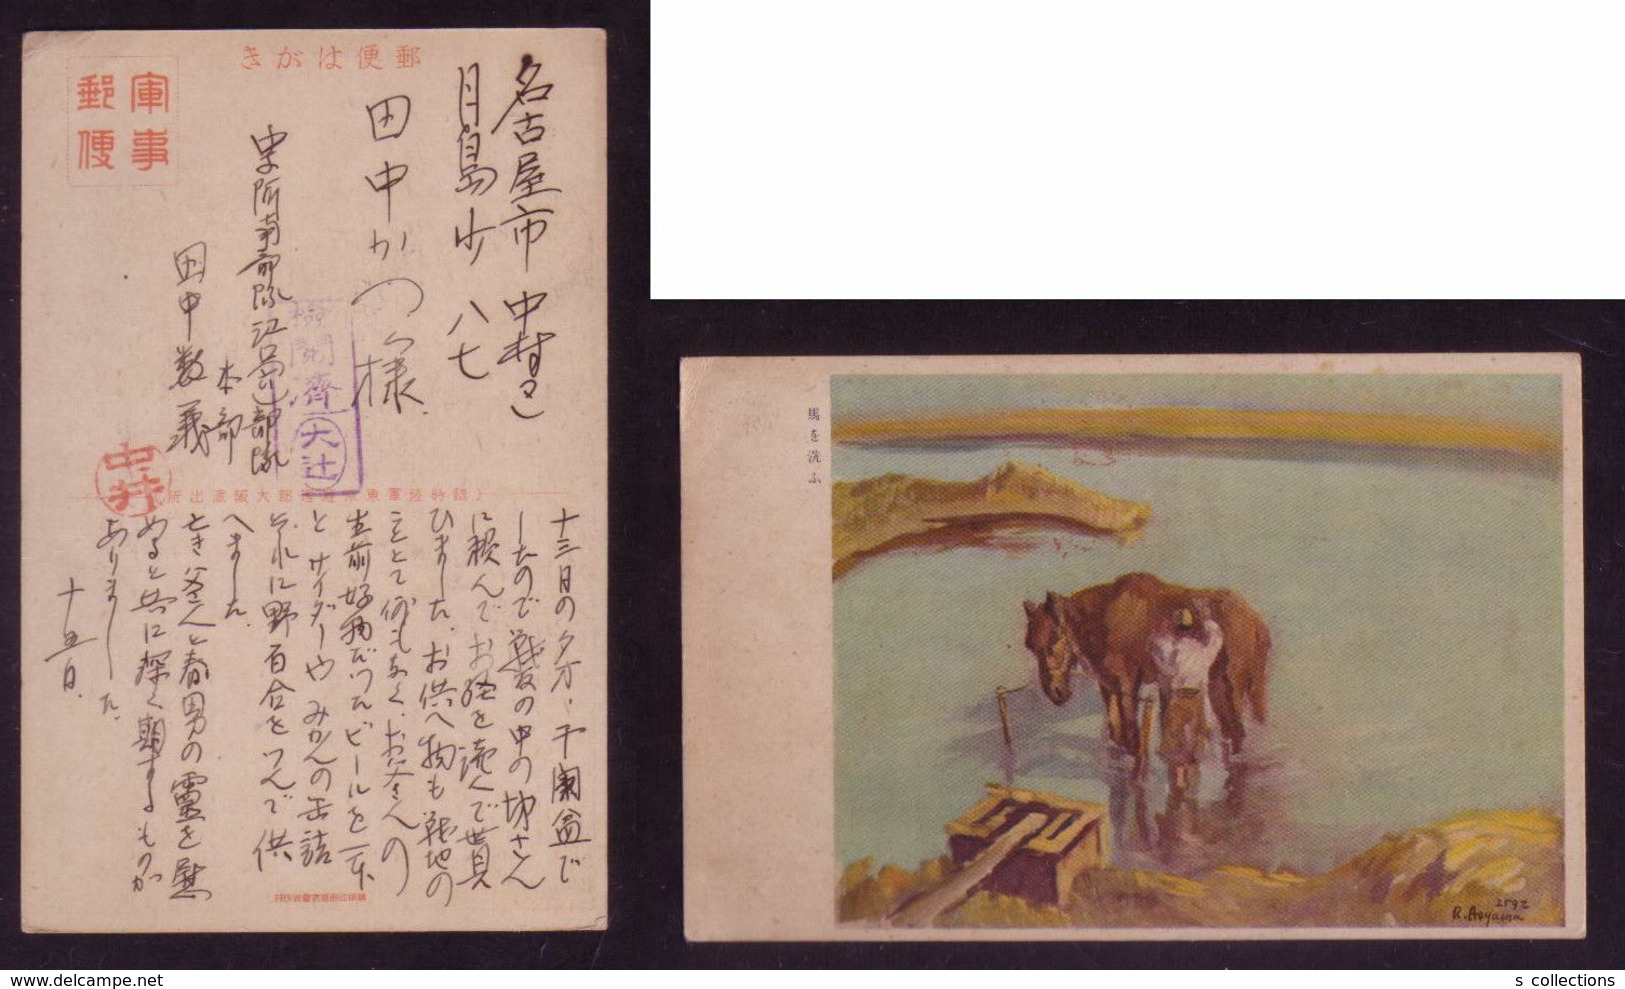 郵便はがき
軍事
郵便
名古屋市 中村区
月島 八七
田中かつ様
部隊
本部
田中数義
検閲済
大辻
中村
十三日の夕方、于蘭盆で
したので戦友の中の坊さん
に頼んでお経を読んで貰
ひました。お供へ物も戦地の
こととて何もなく、お父さんの
生前好物だったビールを一本
とサイダーや みかんの缶詰
それに野百合をつんで供
へました
とき父さんと春男の霊を慰
めると共に深く期するものが
ありました。
十五日.
馬を洗ふ
2592
R. Aoyama
s collections